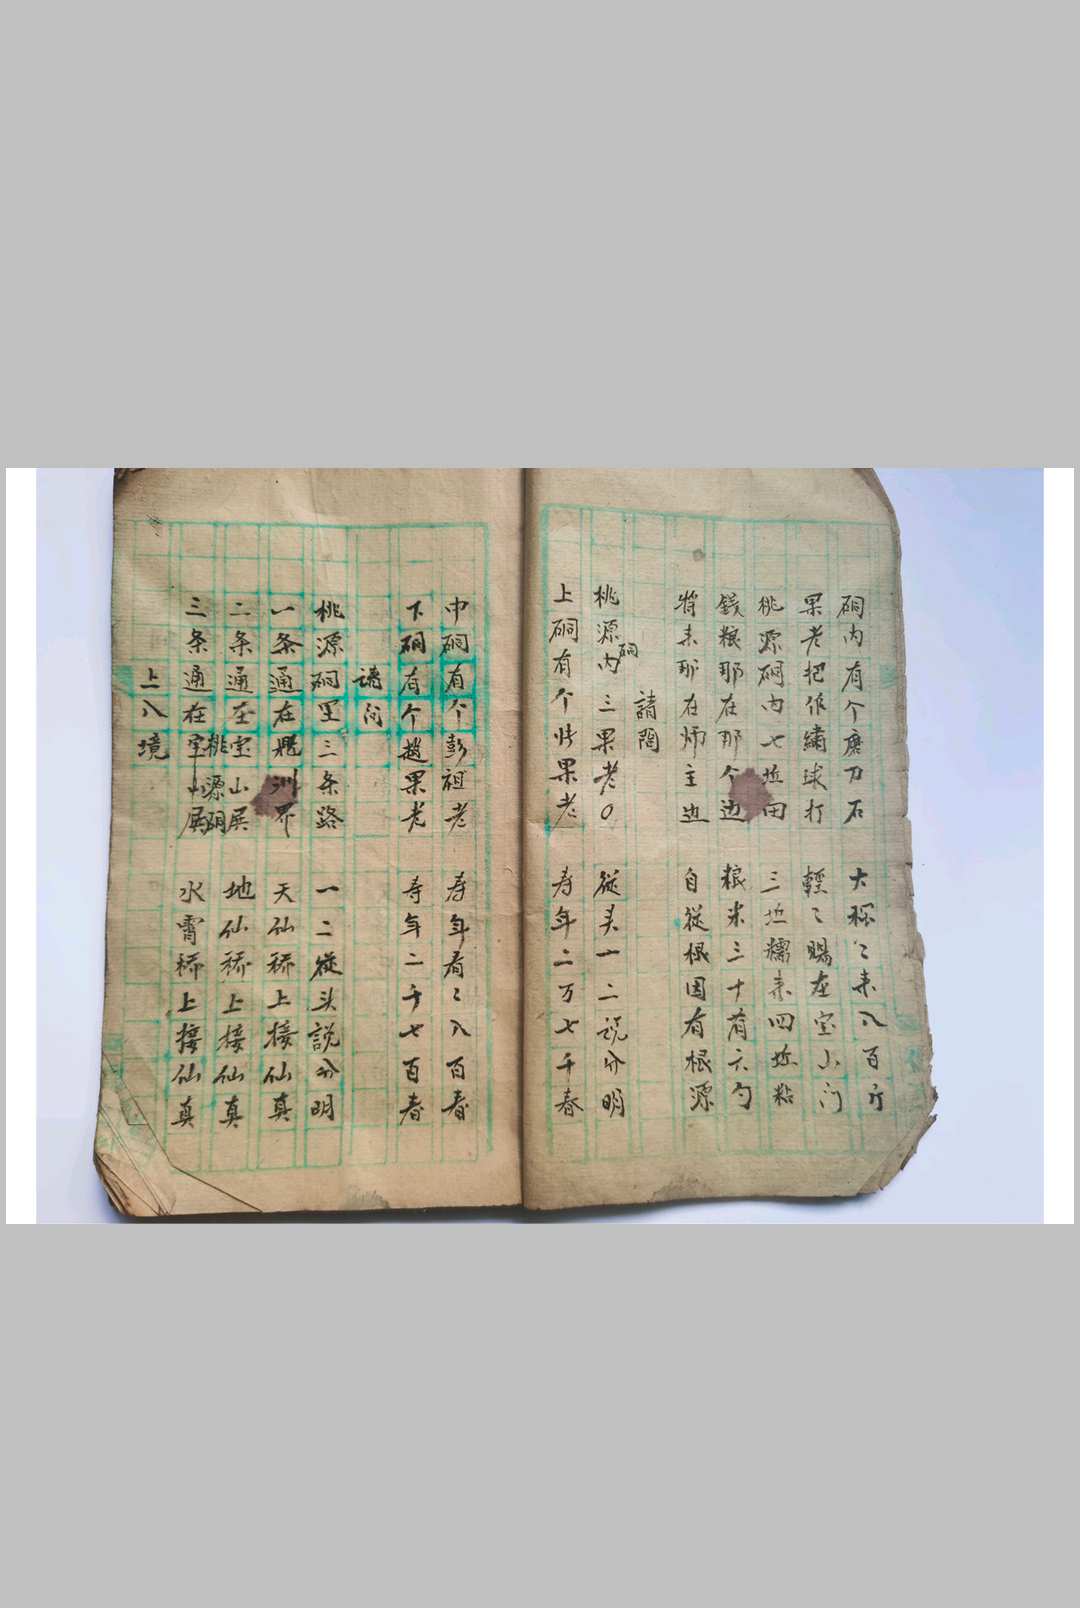 硐内有个磨刀石 大称〻来八百斤
果老把作繡球打 輕〻賜在宝山门
桃源硐内七坵田 三坵糯来四坵粘
餸粮那在那个边 粮米三十有六勺
将来那在师主边 自从根因有根源
請問
桃源硐内三果老〇 從头一二説分明
上硐有个张果老 寿年二万七千春
中硐有个彭祖老 寿年看〻八百春
下硐有个趙果老 寿年二千七百春
請问
桃源硐里三条路 一二從头説分明
一条通在 洲界 天仙桥上接仙真
二条通在宝山展 地仙桥上接仙真
桃源硐
三条通在 山展 水霄桥上接仙真
上八境